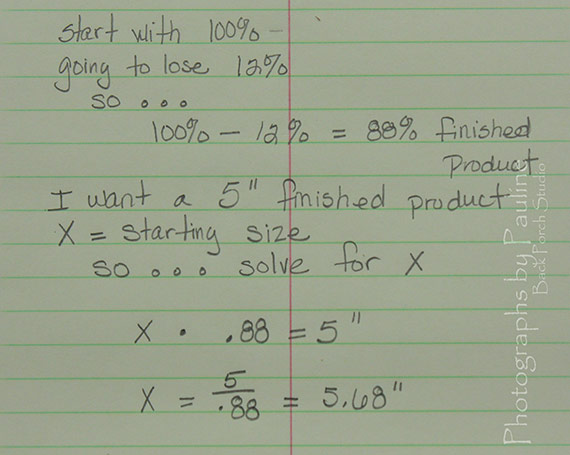 start with 100% -
going to lose 12%
so . . .
100% - 12% = 88% finished
product
I want a 5" finished product
X = starting size
so . . . solve for X
X · .88 = 5"
X = 5/.88 = 5.68"
Photographs by Pauline
Back Porch Studio